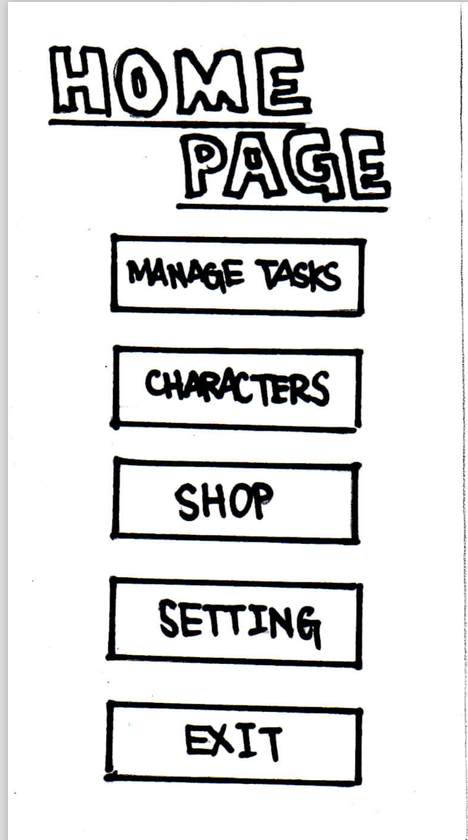 HOME
PAGE
MANAGE TASKS
CHARACTERS
SHOP
SETTING
EXIT